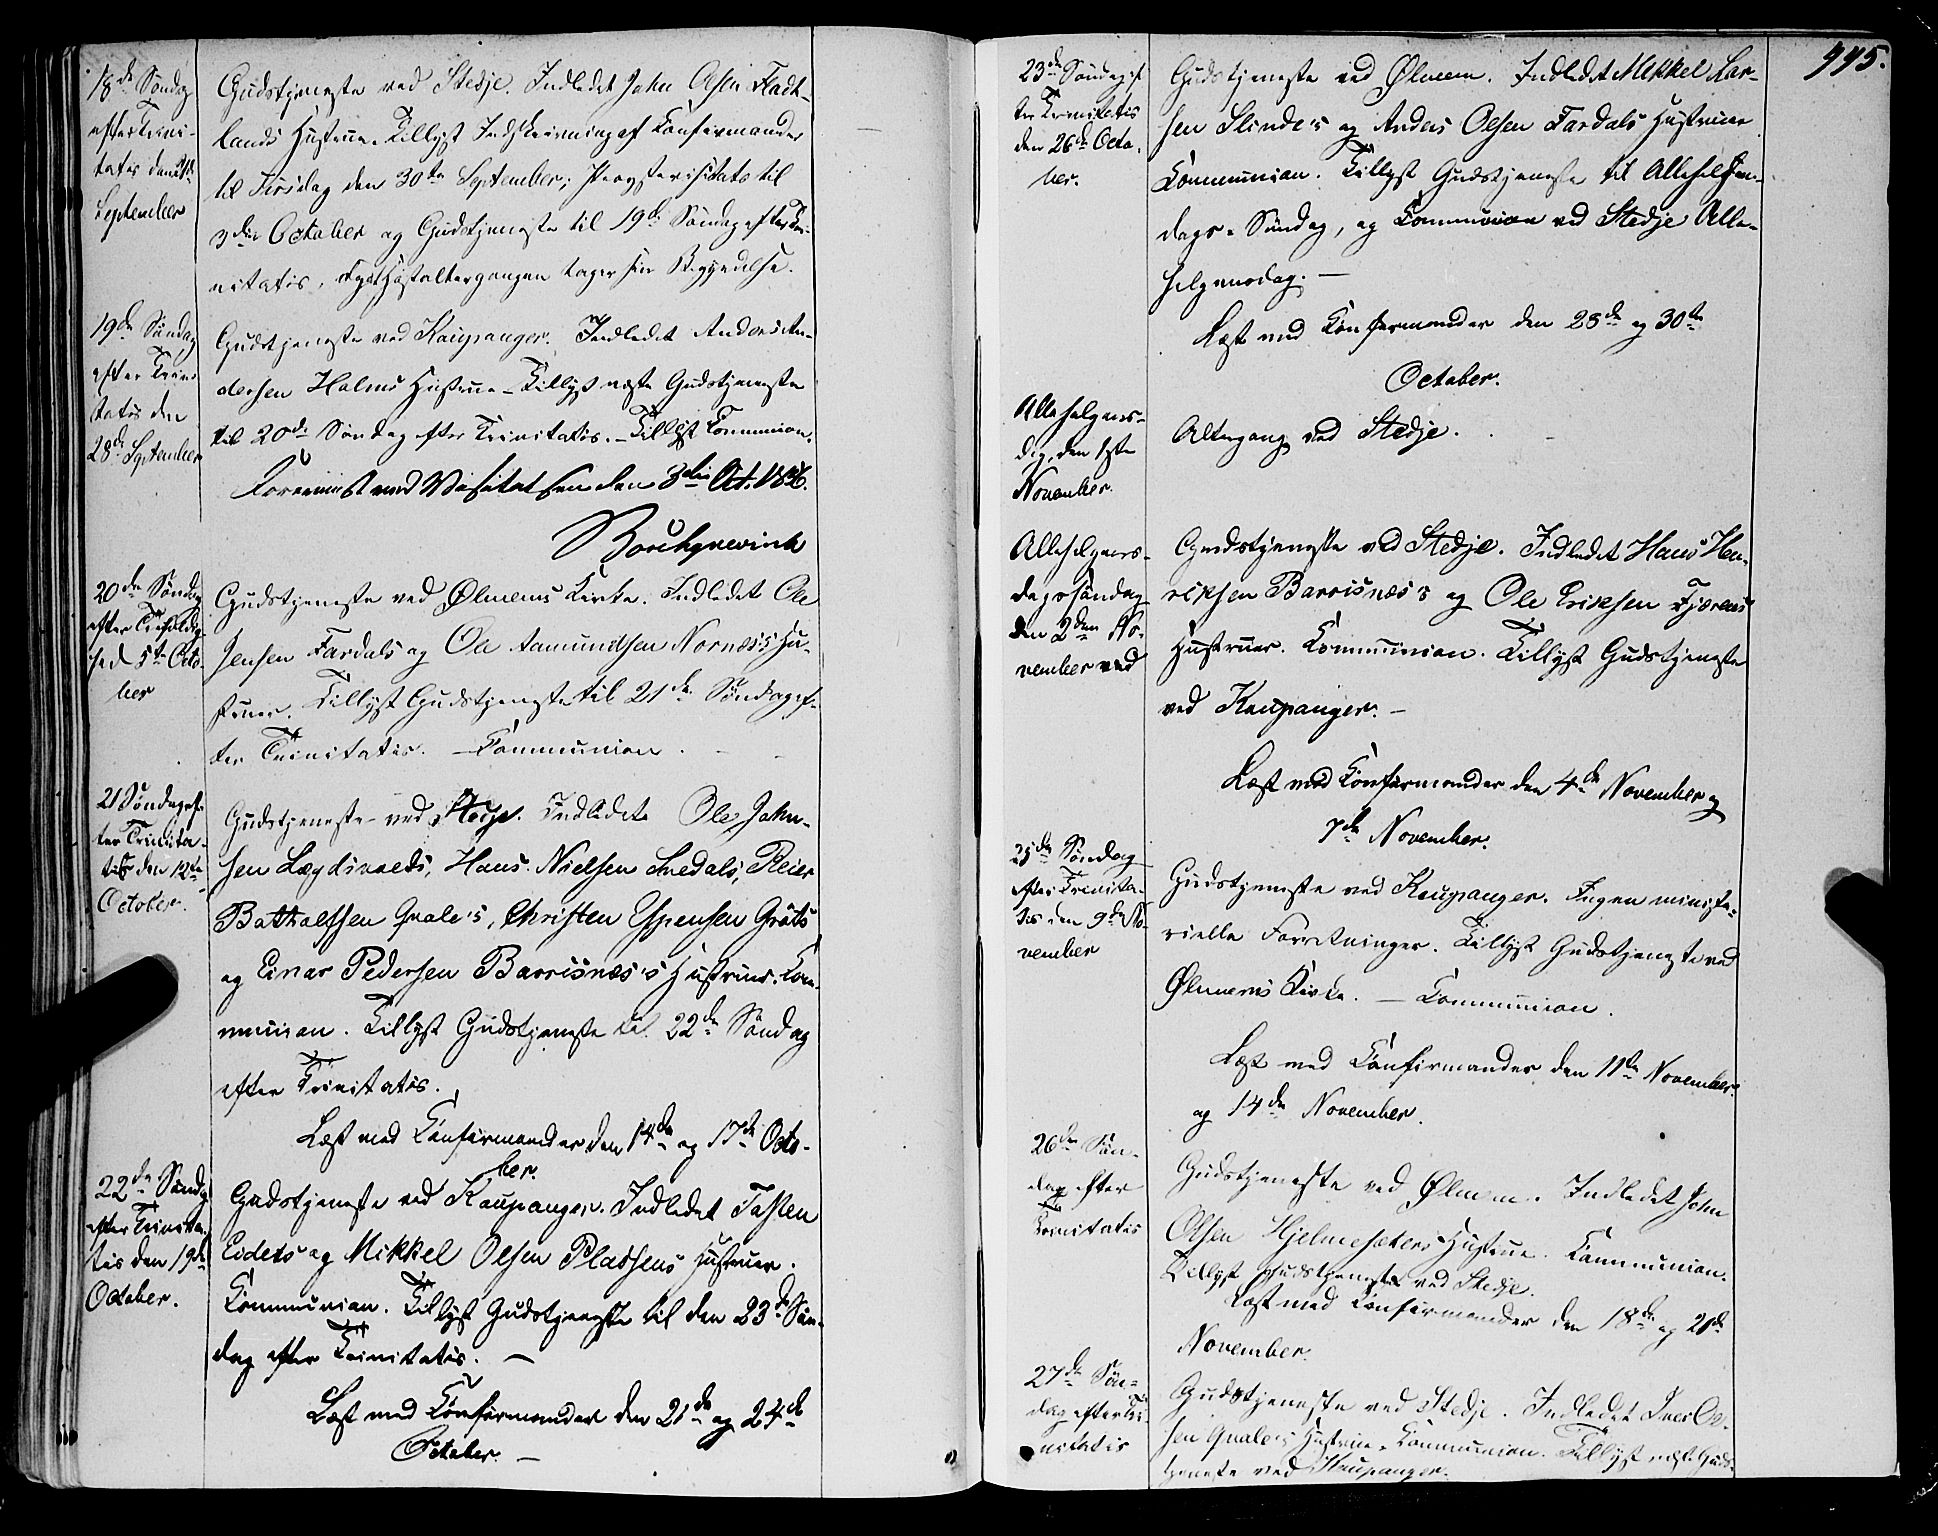 18de Søndag
efter Trini-
tatis den 21de
September
Gudstjeneste ved Stedje. Indledet John Olsen Fladt-
lands Hustrue. Tillyst Indskrivning af Confirmander
til Tirsdag den 30te September; Provstevisitats til
3die October og Gudstjeneste til 19de Søndag efter Tri-
nitatis, Høstaltergangen tager sin Begyndelse.
19de Søndag
efter Trini
tatis den
28de September
Gudstjeneste ved Kaupanger. Indledet Anders An-
dersen Holms Hustrue - Tillyst næste Gudstjeneste
til 20de Søndag efter Trinitatis. - Tillyst Communion.
Foreviist ved Visitatsen den 3die Oct.
20de Søndag
efter Trefoldig-
hed 5te Octo-
ber
Gudstjeneste ved Ølmems Kirke. Indledet Ole
Jensen Fardals og Ole Aamundsen Nornæs's Hu-
struer. Tillyst Gudstjeneste til 21de Søndag ef-
ter Trinitatis. - Communion.
21 Søndag ef-
ter Trinita-
tis den 12te
October.
Gudstjeneste ved Stedje. Indledet Ole John-
sen Lægdsvolds, Hans Nielsen Lædals, Reier
Bathalfsen Quale's, Christen Espensen Grôts
og Einar Pedersen Barrisnæs's Hustruer. Com-
munion. Tillyst Gudstjeneste til 22de Søndag
efter Trinitatis.
Læst med Confirmander den 14de og 17de Octo-
ber.
22de Søndag
efter Trinita-
tis den 19de
October.
Gudstjeneste ved Kaupanger. Indledet Tosten
Eidets og Mikkel Olsen Pladsens Hustruer.
Communion. Tillyst Gudstjeneste til den 23de Søn-
dag efter Trinitatis. -
Læst med Confirmander den 21de og 24de
October. -
995.
23de Søndag ef
ter Trinitatis
den 26de Octo-
ber.
Gudstjeneste ved Ølmem. Indledet Mikkel Lar-
sen Slinde's og Anders Olsen Fardals Hustruer
Communion. Tillyst Gudstjeneste til Allehelgens-
dags-Søndag, og Communion ved Stedje Alle-
helgensdag. -
Læst med Confirmander den 28de og 30te
October.
Allehelgens-
dag, den 1ste
November.
Altergang ved Stedje.
Allehelgens-
dagssøndag
den 2den No-
vember ved
Gudstjeneste ved Stedje. Indledet Hans Hen-
riksen Barrisnæs's og Ole Eriksen Fjærens
Hustruer. Communion. Tillyst Gudstjeneste
ved Kaupanger. -
Læst med Confirmander den 4de November og
7de November.
25de Søndag
efter Trinita-
tis den 9de No-
vember
Gudstjeneste ved Kaupanger. Ingen ministe-
rielle Forretninger. Tillyst Gudstjeneste ved
Ølmems Kirke. - Communion.
Læst med Confirmander den 11te November
og 14de November.
26de Søn-
dag efter
Trinitatis
Gudstjeneste ved Ølmem. Indledet John
Olsen Hjelmesæters Hustrue. Communion.
Tillyst Gudstjeneste ved Stedje.
Læst med Confirmander den 18de og 21de
November.
27de Søn-
dag efter Tri-
nitatis
Gudstjeneste ved Stedje. Indledet Iver Ol-
sen Quale's Hustrue. Communion. Tillyst næste Guds-
tjeneste ved Kaupanger.